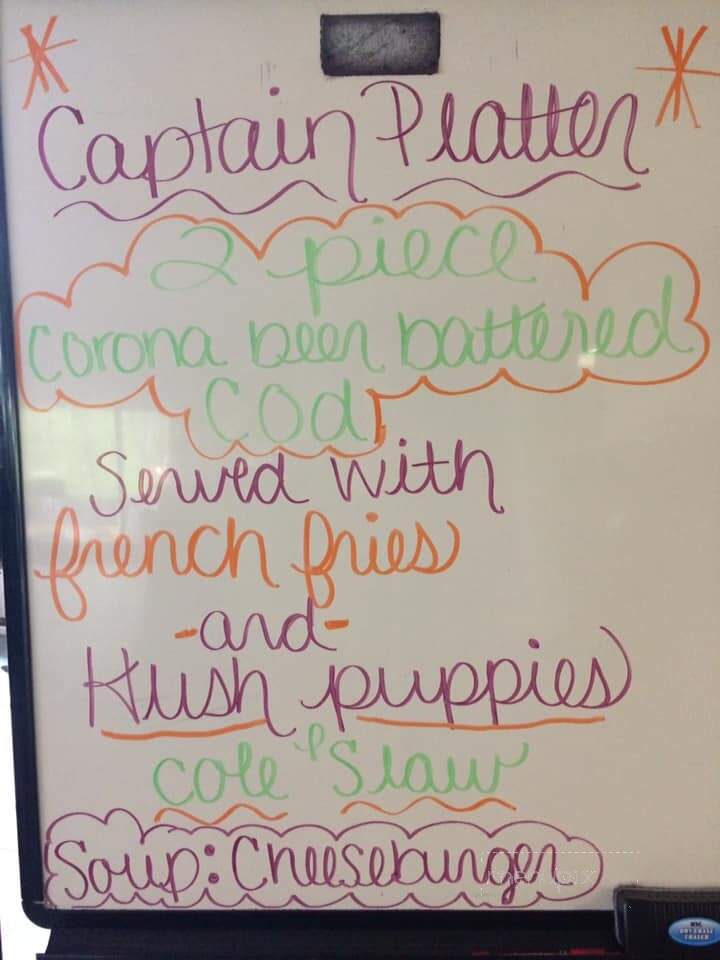 Captain Platter
2 piece
Corona beer battered
Cod
Served with
french fries
-and-
Hush puppies
cole Slaw
Soup: Cheeseburger
menupix